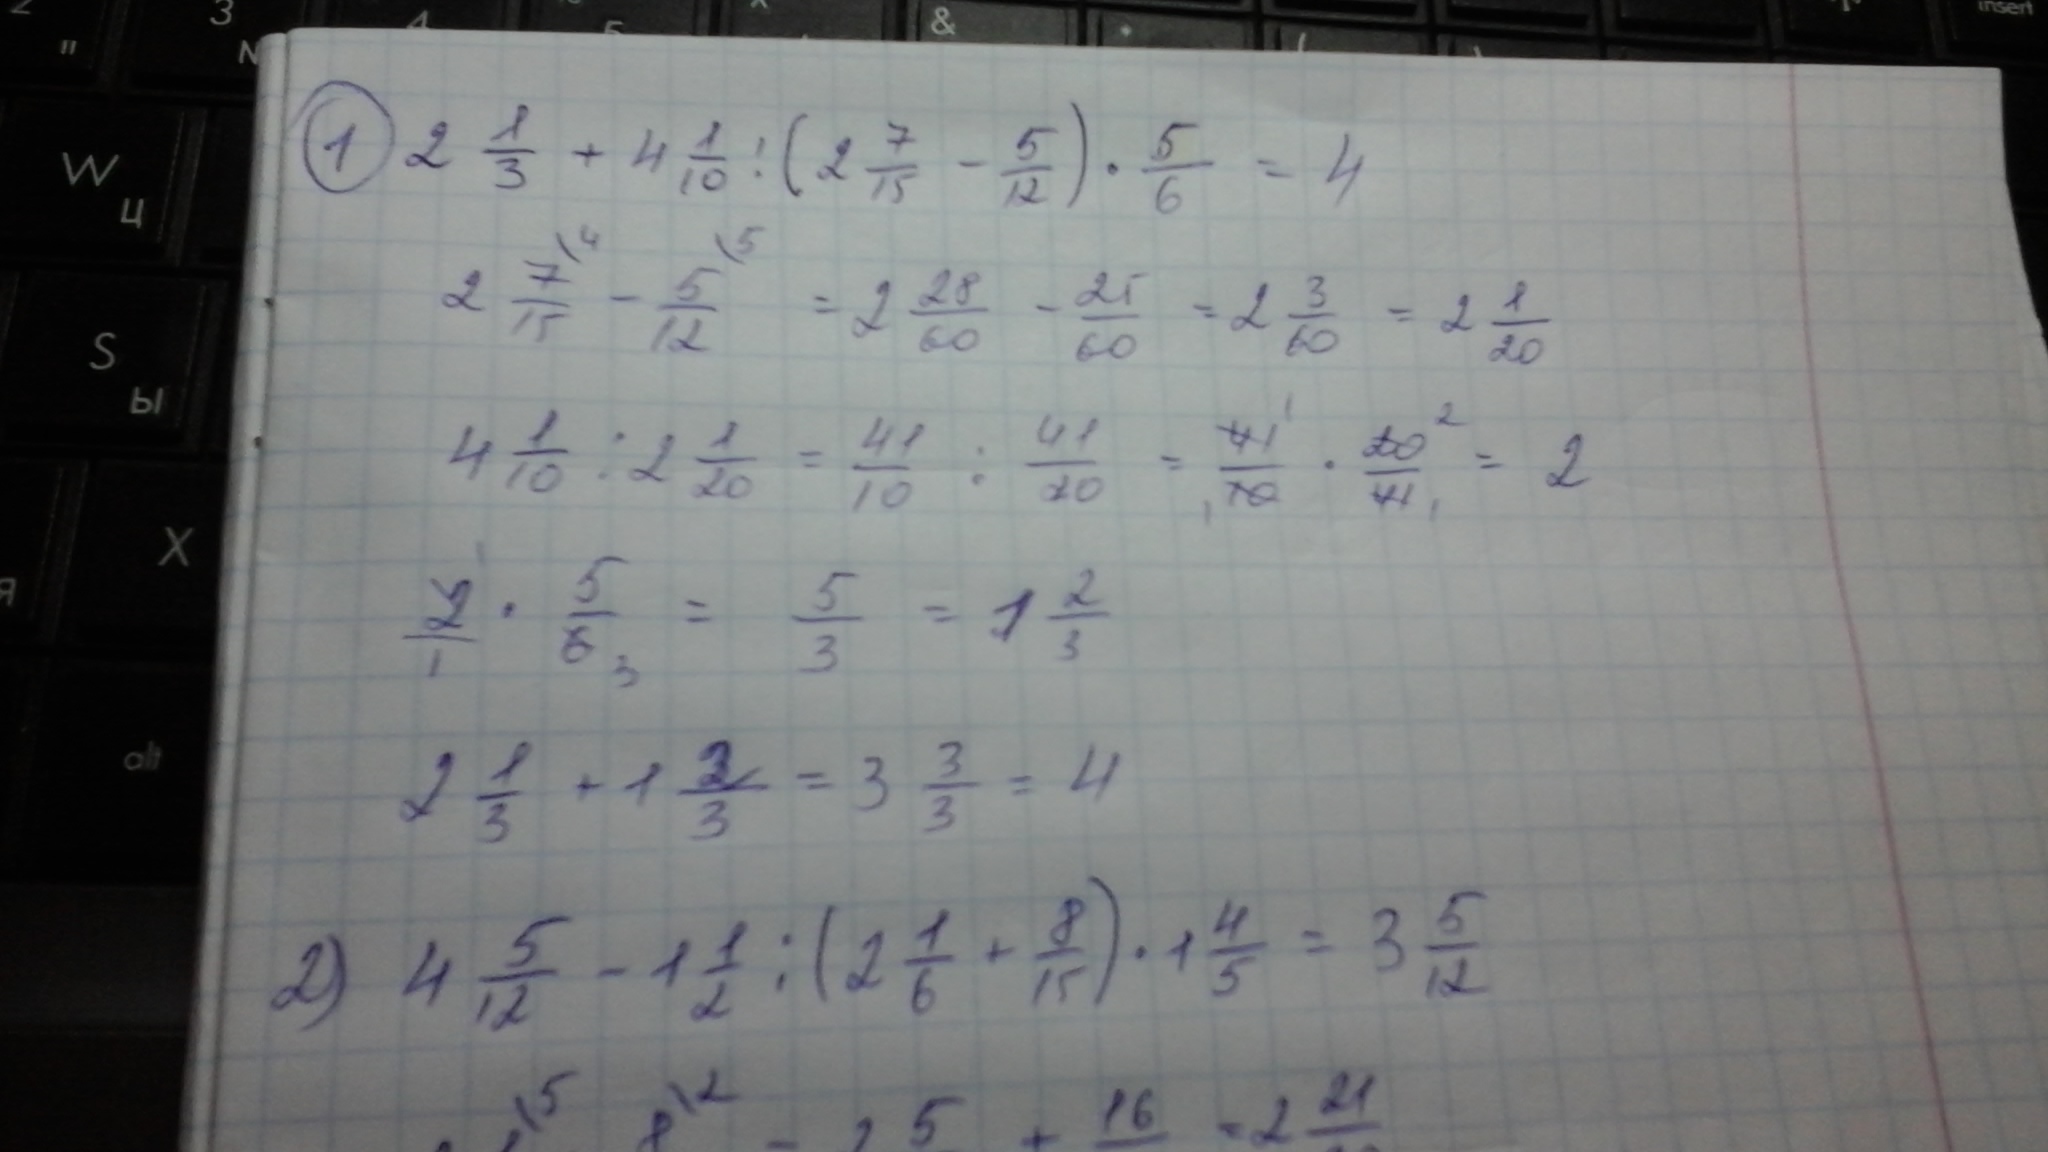 2 " 3 N 4 5 & * ( ) insert
W Ц
S Ы
Я X
alt
① 2 1/3 + 4 1/10 : (2 7/15 - 5/12) · 5/6 = 4
2 7/15 \4 - 5/12 \5 = 2 28/60 - 25/60 = 2 3/60 = 2 1/20
4 1/10 : 2 1/20 = 41/10 : 41/20 = 41/10 · 20/41 = 2
2/1 · 5/6 = 5/3 = 1 2/3
2 1/3 + 1 2/3 = 3 3/3 = 4
2) 4 5/12 - 1 1/2 : (2 1/6 + 8/15) · 1 4/5 = 3 5/12
\5 8 \2 = 2 5 + 16 = 2 21